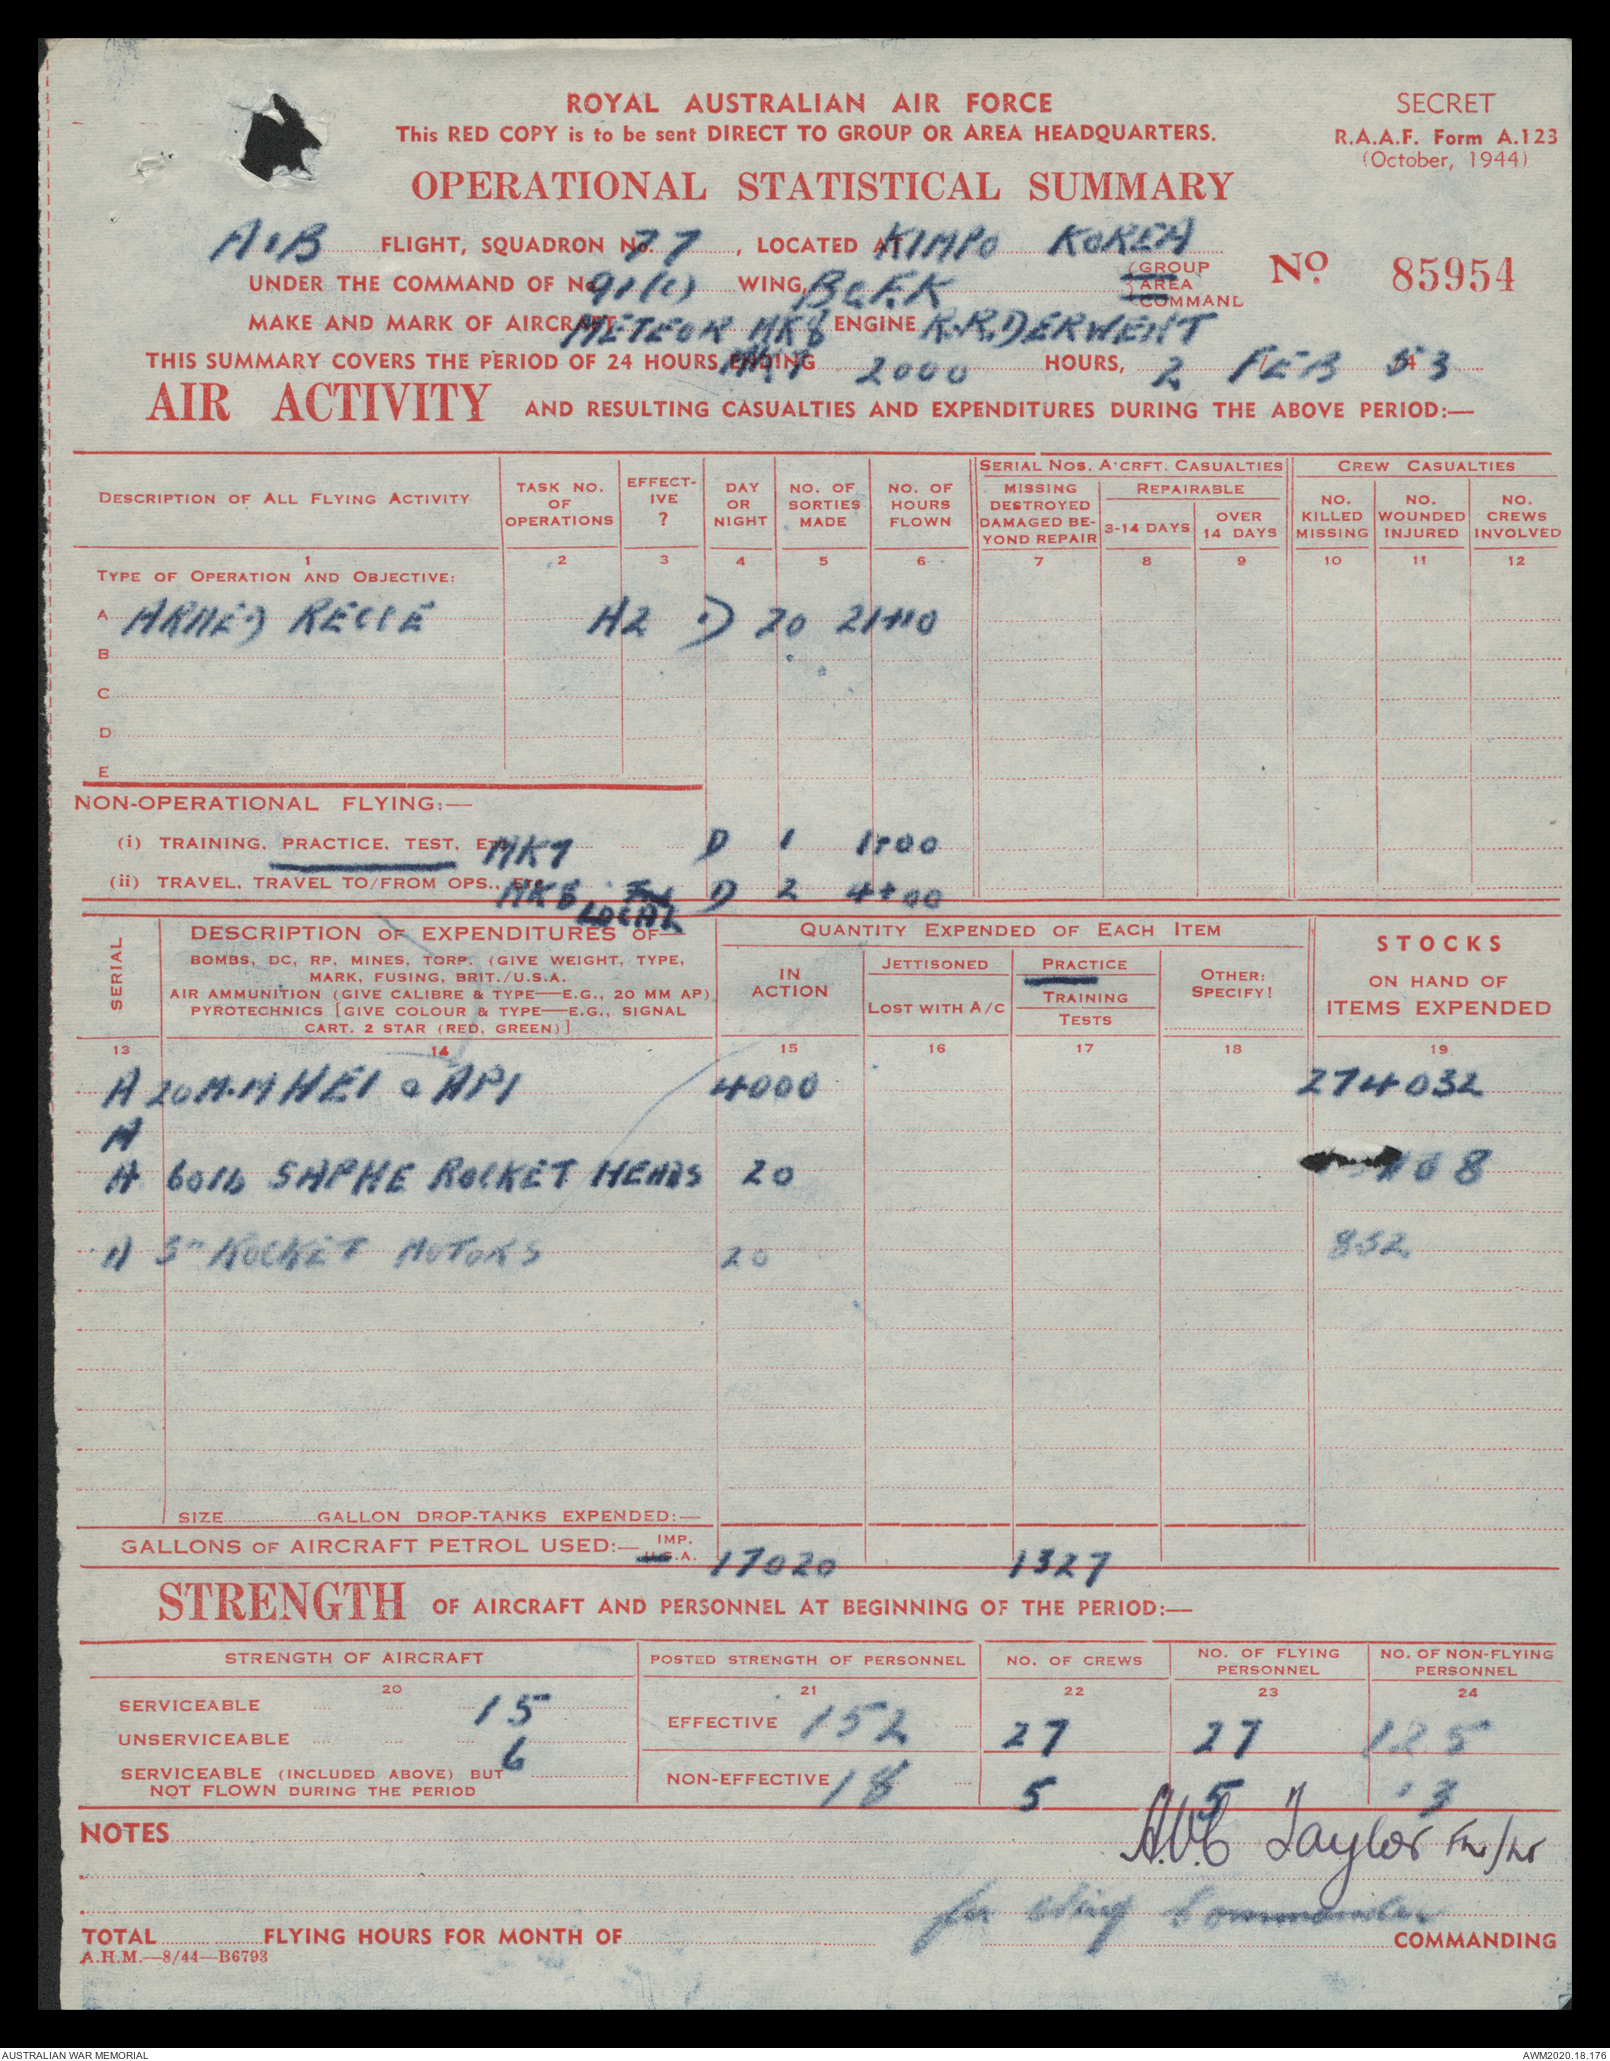 ROYAL AUSTRALIAN AIR FORCE
SECRET
This RED COPY is to be sent DIRECT TO GROUP OR AREA HEADQUARTERS.
R.A.A.F. Form A.123
(October, 1944)
OPERATIONAL STATISTICAL SUMMARY
A & B FLIGHT, SQUADRON No. 77, LOCATED AT KIMPO KOREA
No. 85954
UNDER THE COMMAND OF No. 91(C) WING, BCFK (GROUP AREA COMMAND
MAKE AND MARK OF AIRCRAFT METEOR MK8 ENGINE R.R. DERWENT
MK7
THIS SUMMARY COVERS THE PERIOD OF 24 HOURS ENDING 2000 HOURS, 2 / FEB / 53
AIR ACTIVITY AND RESULTING CASUALTIES AND EXPENDITURES DURING THE ABOVE PERIOD:—
DESCRIPTION OF ALL FLYING ACTIVITY
TASK NO. OF OPERATIONS
EFFECT-IVE ?
DAY OR NIGHT
NO. OF SORTIES MADE
NO. OF HOURS FLOWN
SERIAL NOS. A'CRFT. CASUALTIES
MISSING DESTROYED DAMAGED BE-YOND REPAIR
REPAIRABLE
3-14 DAYS
OVER 14 DAYS
CREW CASUALTIES
NO. KILLED MISSING
NO. WOUNDED INJURED
NO. CREWS INVOLVED
1 2 3 4 5 6 7 8 9 10 11 12
TYPE OF OPERATION AND OBJECTIVE:
A ARMED RECCE A2 D 20 21+10
B
C
D
E
NON-OPERATIONAL FLYING:—
(i) TRAINING, PRACTICE, TEST, ETC. MK7 D 1 1+00
(ii) TRAVEL, TRAVEL TO/FROM OPS., ETC. MK8 LOCAL D 2 4+00
SERIAL
DESCRIPTION OF EXPENDITURES OF—
BOMBS, DC, RP, MINES, TORP. (GIVE WEIGHT, TYPE,
MARK, FUSING, BRIT./U.S.A.
AIR AMMUNITION (GIVE CALIBRE & TYPE—E.G., 20 MM AP)
PYROTECHNICS [GIVE COLOUR & TYPE—E.G., SIGNAL
CART. 2 STAR (RED, GREEN)]
QUANTITY EXPENDED OF EACH ITEM
IN ACTION
JETTISONED
LOST WITH A/C
PRACTICE
TRAINING
TESTS
OTHER: SPECIFY!
STOCKS
ON HAND OF
ITEMS EXPENDED
13 14 15 16 17 18 19
A 20 M.M HEI & API 4000 274032
A
A 60lb SAPHE ROCKET HEADS 20 08
A 3" ROCKET MOTORS 20 852
SIZE GALLON DROP-TANKS EXPENDED:—
GALLONS OF AIRCRAFT PETROL USED:— IMP. U.S.A. 17020 1327
STRENGTH OF AIRCRAFT AND PERSONNEL AT BEGINNING OF THE PERIOD:—
STRENGTH OF AIRCRAFT
POSTED STRENGTH OF PERSONNEL
NO. OF CREWS
NO. OF FLYING PERSONNEL
NO. OF NON-FLYING PERSONNEL
20 21 22 23 24
SERVICEABLE 15
EFFECTIVE 152 27 27 125
UNSERVICEABLE 6
SERVICEABLE (INCLUDED ABOVE) BUT
NOT FLOWN DURING THE PERIOD
NON-EFFECTIVE 18 5 5 13
NOTES
A.V.C Taylor Flt/Lt
for Wing Commander
TOTAL FLYING HOURS FOR MONTH OF COMMANDING
A.H.M.—8/44—B6793
AUSTRALIAN WAR MEMORIAL
AWM2020.18.176